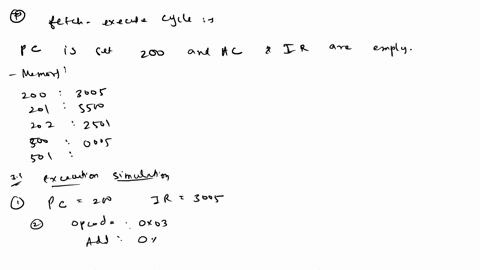 fetch-execute cycle is
PC is set 200 and AC & IR are empty.
- Memory:
200 : 3005
201 : 5500
202 : 2501
500 : 0005
501 :
execution simulation
① PC = 200 IR = 3005
② Opcode : 0x03
Add : 0x